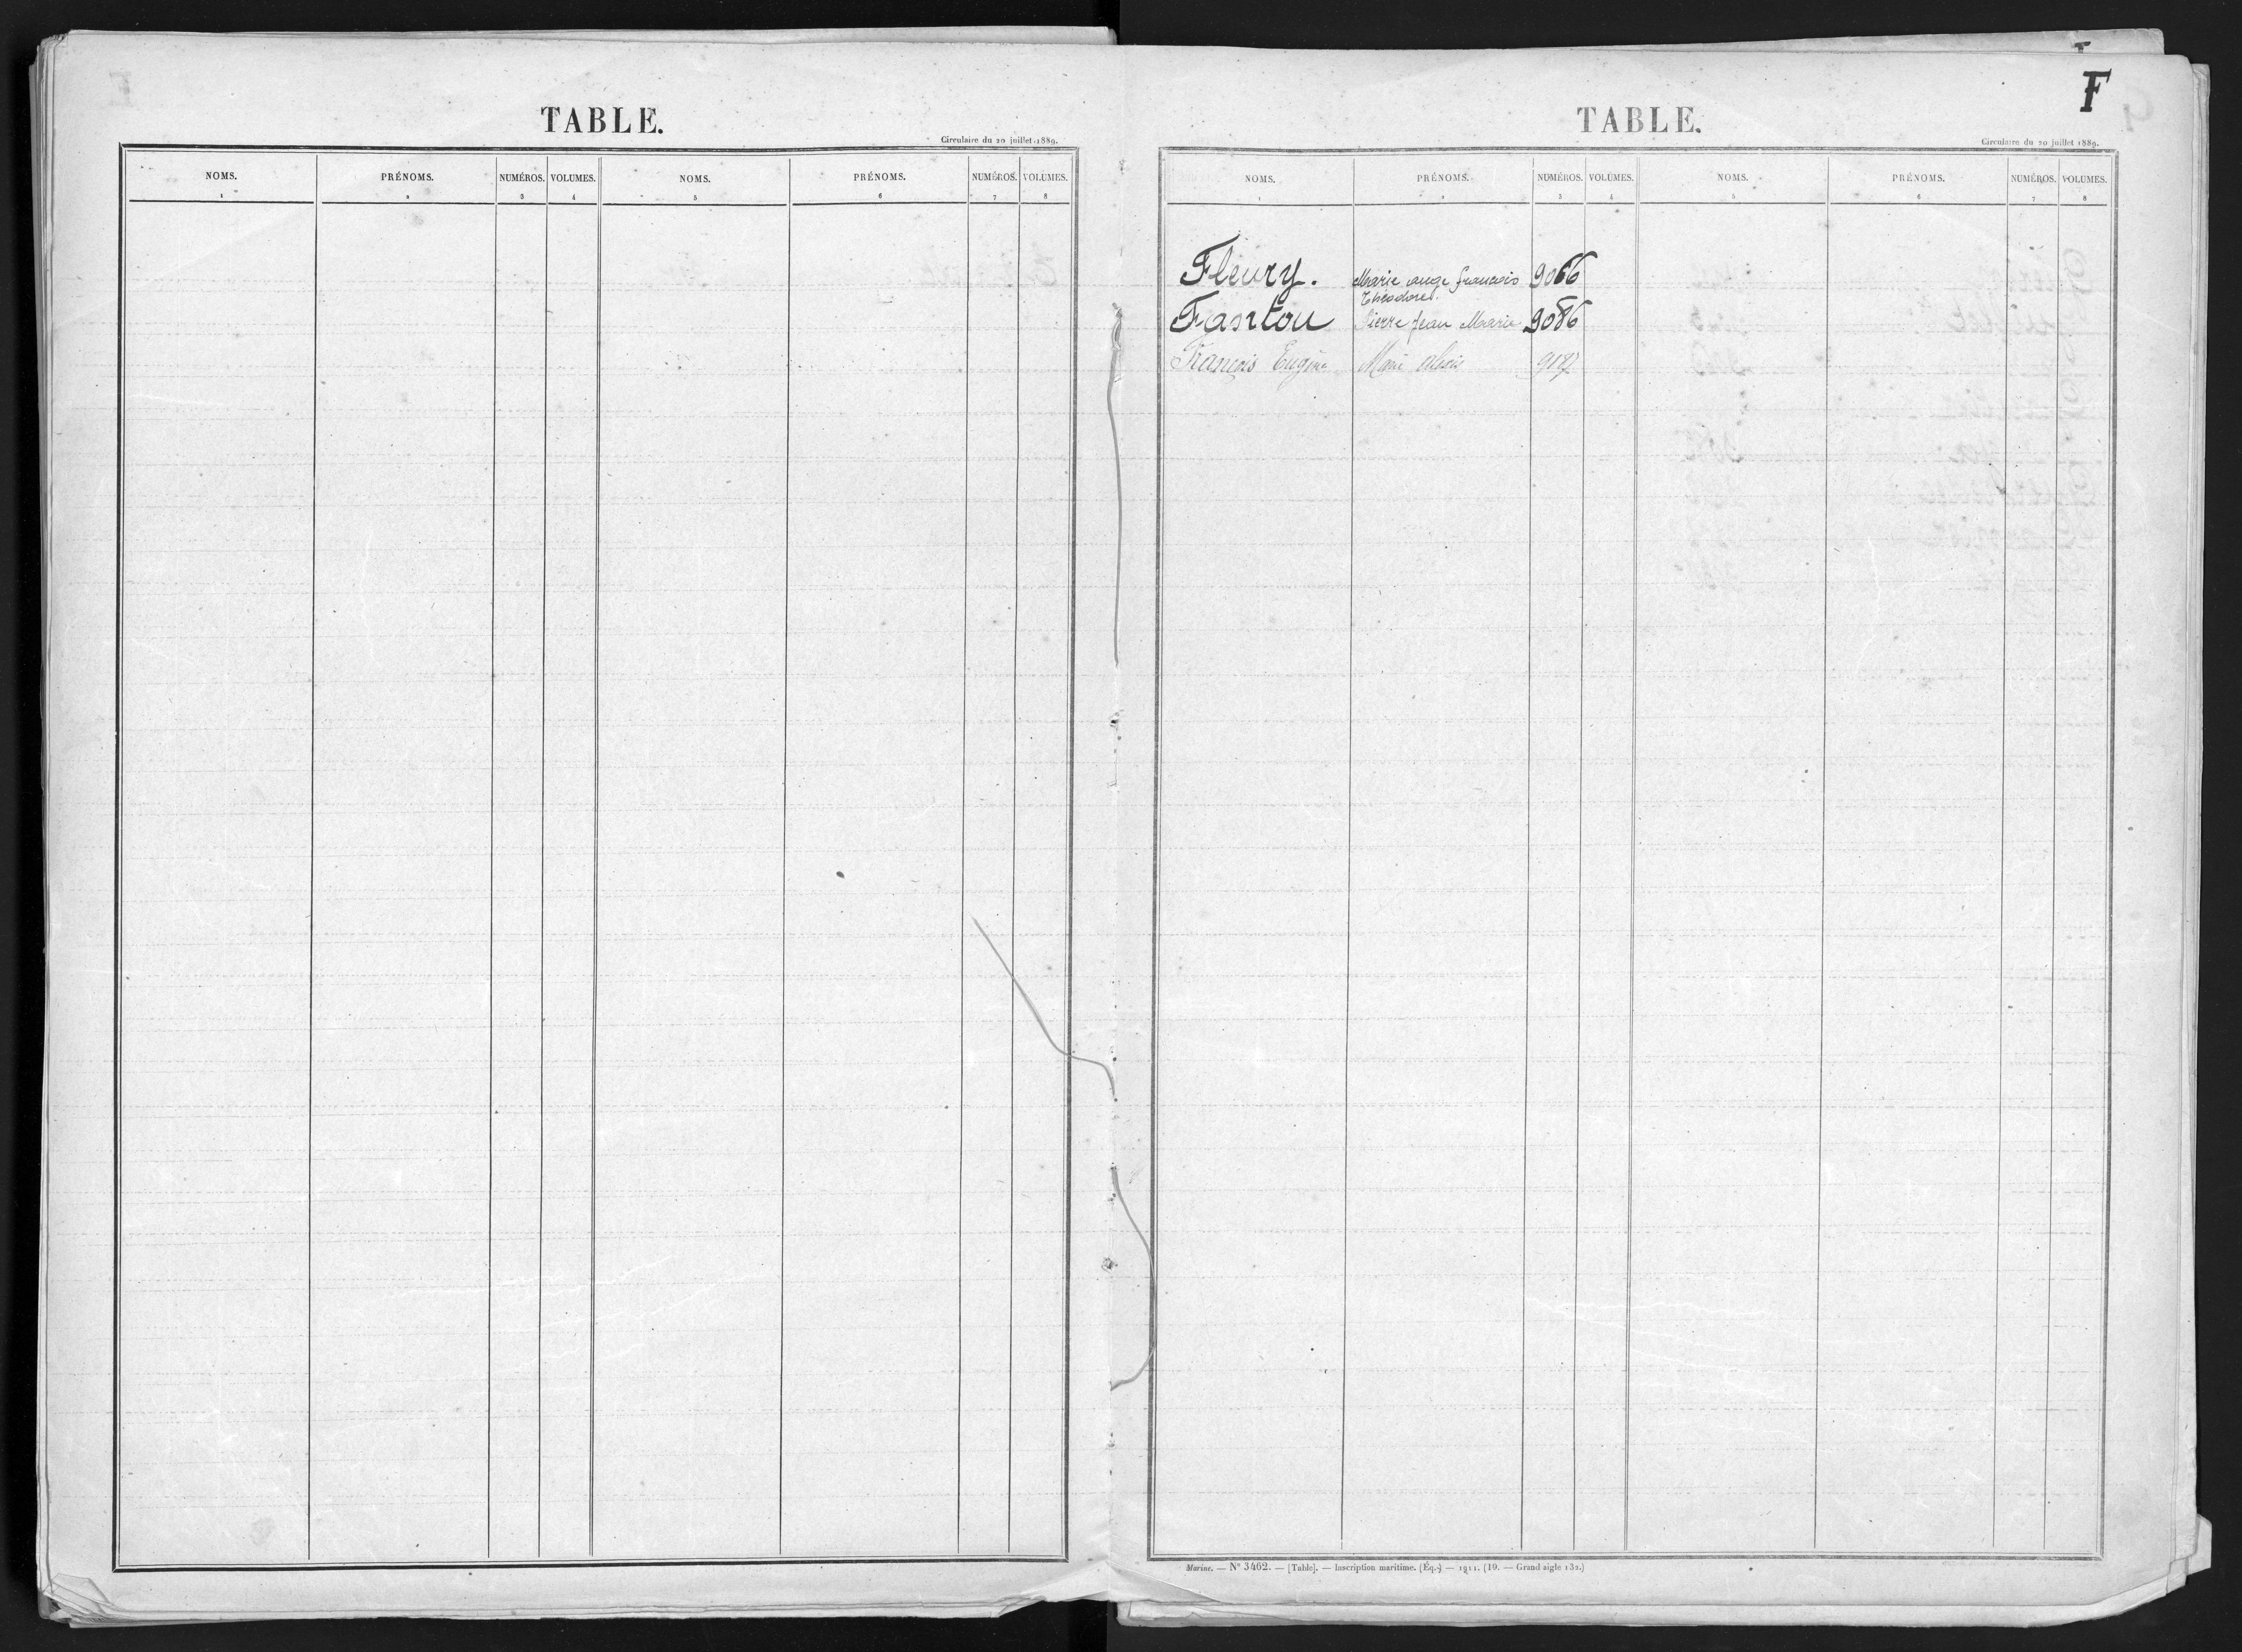 TABLE.
Circulaire du 20 juillet 1889.
NOMS. PRÉNOMS. NUMÉROS. VOLUMES. NOMS. PRÉNOMS. NUMÉROS. VOLUMES.
1 2 3 4 5 6 7 8
F
TABLE.
Circulaire du 20 juillet 1889.
NOMS. PRÉNOMS. NUMÉROS. VOLUMES. NOMS. PRÉNOMS. NUMÉROS. VOLUMES.
1 2 3 4 5 6 7 8
Fleury. Marie ange francois 9066
Théodore
Fantou Pierre Jean Marie 9086
François Eugène Marie
Marine. — N° 3462. — [Table]. — Inscription maritime. (Éq.) — 1911. (19. — Grand aigle 132.)